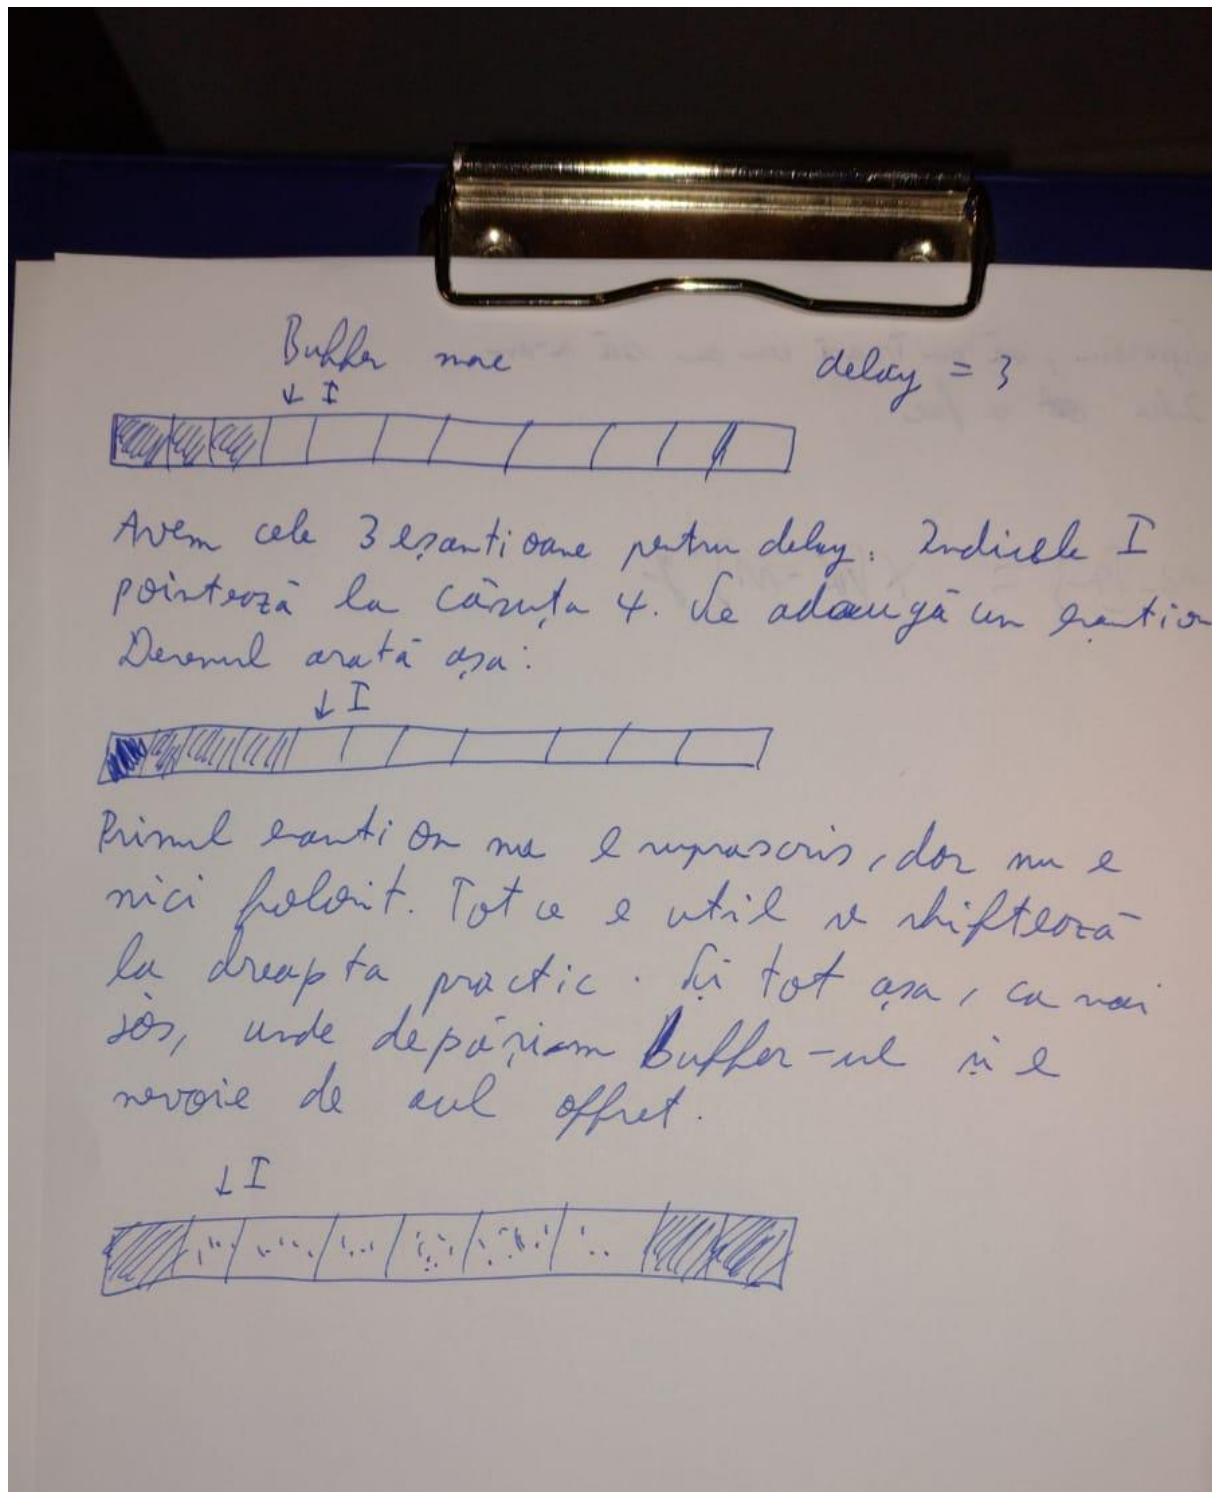 Buffer mare delay = 3
↓ I
Avem cele 3 eșantioane pentru delay. Indicele I
pointează la căsuța 4. Se adaugă un eșantion
Desenul arată așa:
↓ I
Primul eșantion nu e suprascris, dar nu e
nici folosit. Tot ce e util se shiftează
la dreapta practic. Și tot așa, ca mai
jos, unde depășim buffer-ul și e
nevoie de acel offset.
↓ I